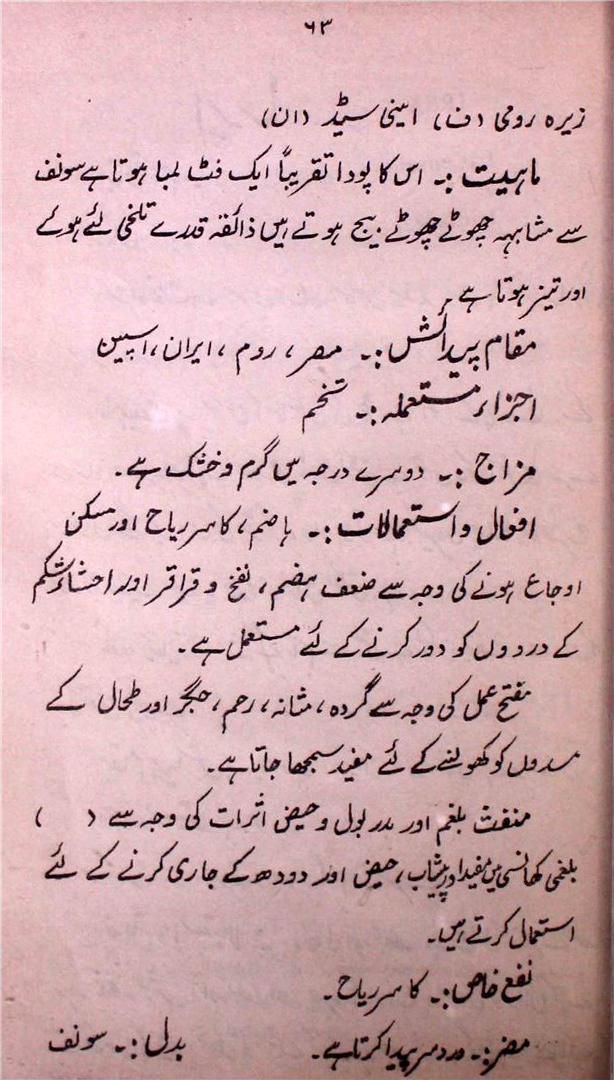 ۶۳
زیرہ رومی (ف) اینی سیڈ (ان)
ماہیت :۔ اس کا پودا تقریباً ایک فٹ لمبا ہوتا ہے سونف
سے مشابہہ چھوٹے چھوٹے بیج ہوتے ہیں ذائقہ قدرے تلخی لئے ہوئے
اور تیز ہوتا ہے۔
مقام پیدائش :۔ مصر، روم، ایران، اسپین
اجزاء مستعملہ :۔ تخم
مزاج :۔ دوسرے درجہ میں گرم و خشک ہے۔
افعال و استعمالات :۔ ہاضم، کاسر ریاح اور مسکن
اوجاع ہونے کی وجہ سے ضعف ہضم، نفخ و قراقر اور احشاء شکم
کے دردوں کو دور کرنے کے لئے مستعمل ہے۔
مفتح عمل کی وجہ سے گردہ، مثانہ، رحم، جگر اور طحال کے
سدوں کو کھولنے کے لئے مفید سمجھا جاتا ہے۔
منفث بلغم اور مدر بول و حیض اثرات کی وجہ سے ( )
بلغمی کھانسی میں مفید اور پیشاب، حیض اور دودھ کے جاری کرنے کے لئے
استعمال کرتے ہیں۔
نفع خاص :۔ کاسر ریاح۔
مضر :۔ درد سر پیدا کرتا ہے۔ بدل :۔ سونف